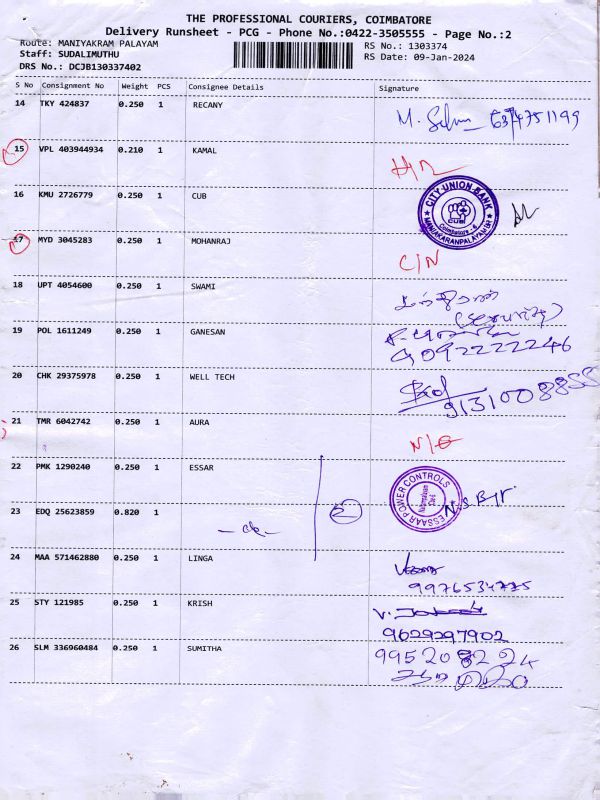 THE PROFESSIONAL COURIERS, COIMBATORE
Delivery Runsheet - PCG - Phone No.:0422-3505555 - Page No.:2
Route: MANIYAKRAM PALAYAM
RS No.: 1303374
Staff: SUDALIMUTHU
RS Date: 09-Jan-2024
DRS No.: DCJB130337402
S No Consignment No Weight PCS Consignee Details Signature
14 TKY 424837 0.250 1 RECANY
15 VPL 403944934 0.210 1 KAMAL
16 KMU 2726779 0.250 1 CUB
CITY UNION BANK
CUB
Coimbatore - 6
17 MYD 3045283 0.250 1 MOHANRAJ
C/N
18 UPT 4054600 0.250 1 SWAMI
19 POL 1611249 0.250 1 GANESAN
20 CHK 29375978 0.250 1 WELL TECH
21 TMR 6042742 0.250 1 AURA
22 PMK 1290240 0.250 1 ESSAR
ESSAAR POWER CONTROLS
23 EDQ 25623859 0.820 1
2
24 MAA 571462880 0.250 1 LINGA
9976534775
25 STY 121985 0.250 1 KRISH
9629297902
26 SLM 336960484 0.250 1 SUMITHA